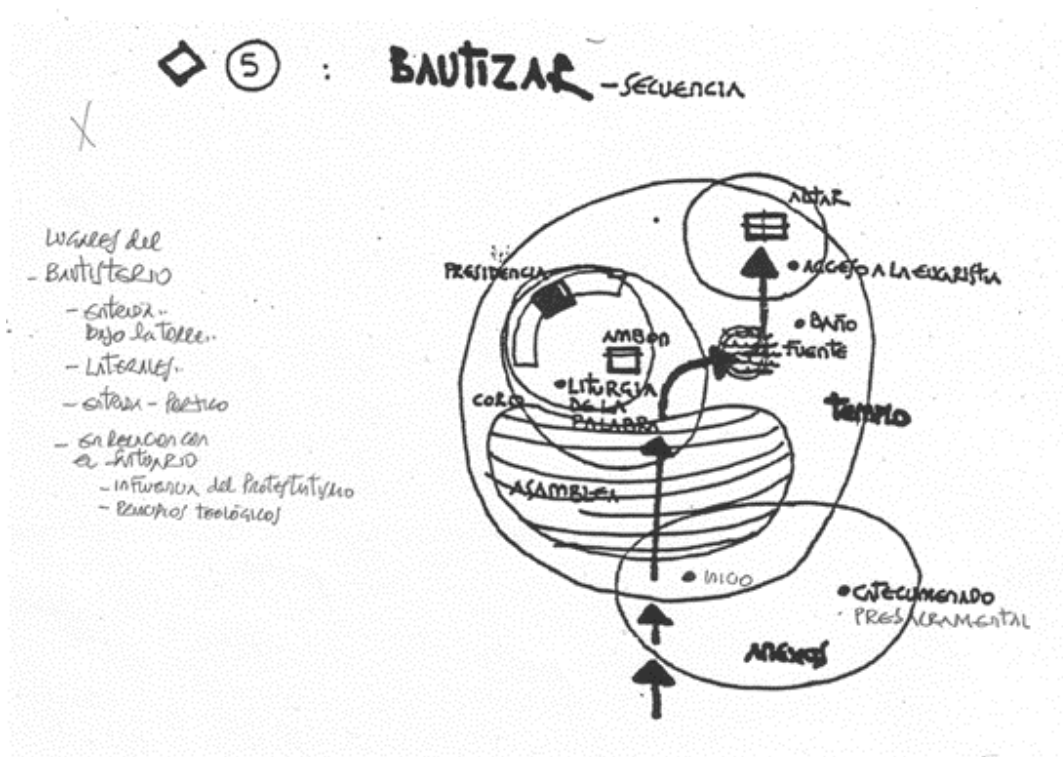 5 : BAUTIZAR - SECUENCIA
LUGARES del
- BAUTISTERIO
- entrada..
bajo la torre..
- LATERALES..
- entrada - PORTICO
- en RELACION con
el SANTUARIO
- INFLUENCIA del Protestantismo
- PRINCIPIOS TEOLÓGICOS
ALTAR
PRESIDENCIA
• ACCESO A LA EUCARISTIA
• BAÑO
FUENTE
AMBON
• LITURGIA
DE LA
PALABRA
CORO
TEMPLO
ASAMBLEA
• INICIO
• CATECUMENADO
• PRESACRAMENTAL
ANEXOS